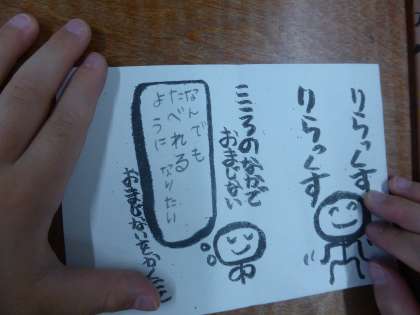 りらっくす
りらっくす
こころのなかで
おまじない
なんでも
たべれる
ように
なりたい
おまじないをかくところ